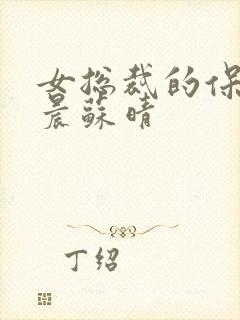 女总裁的保
晨蘇晴
丁绍